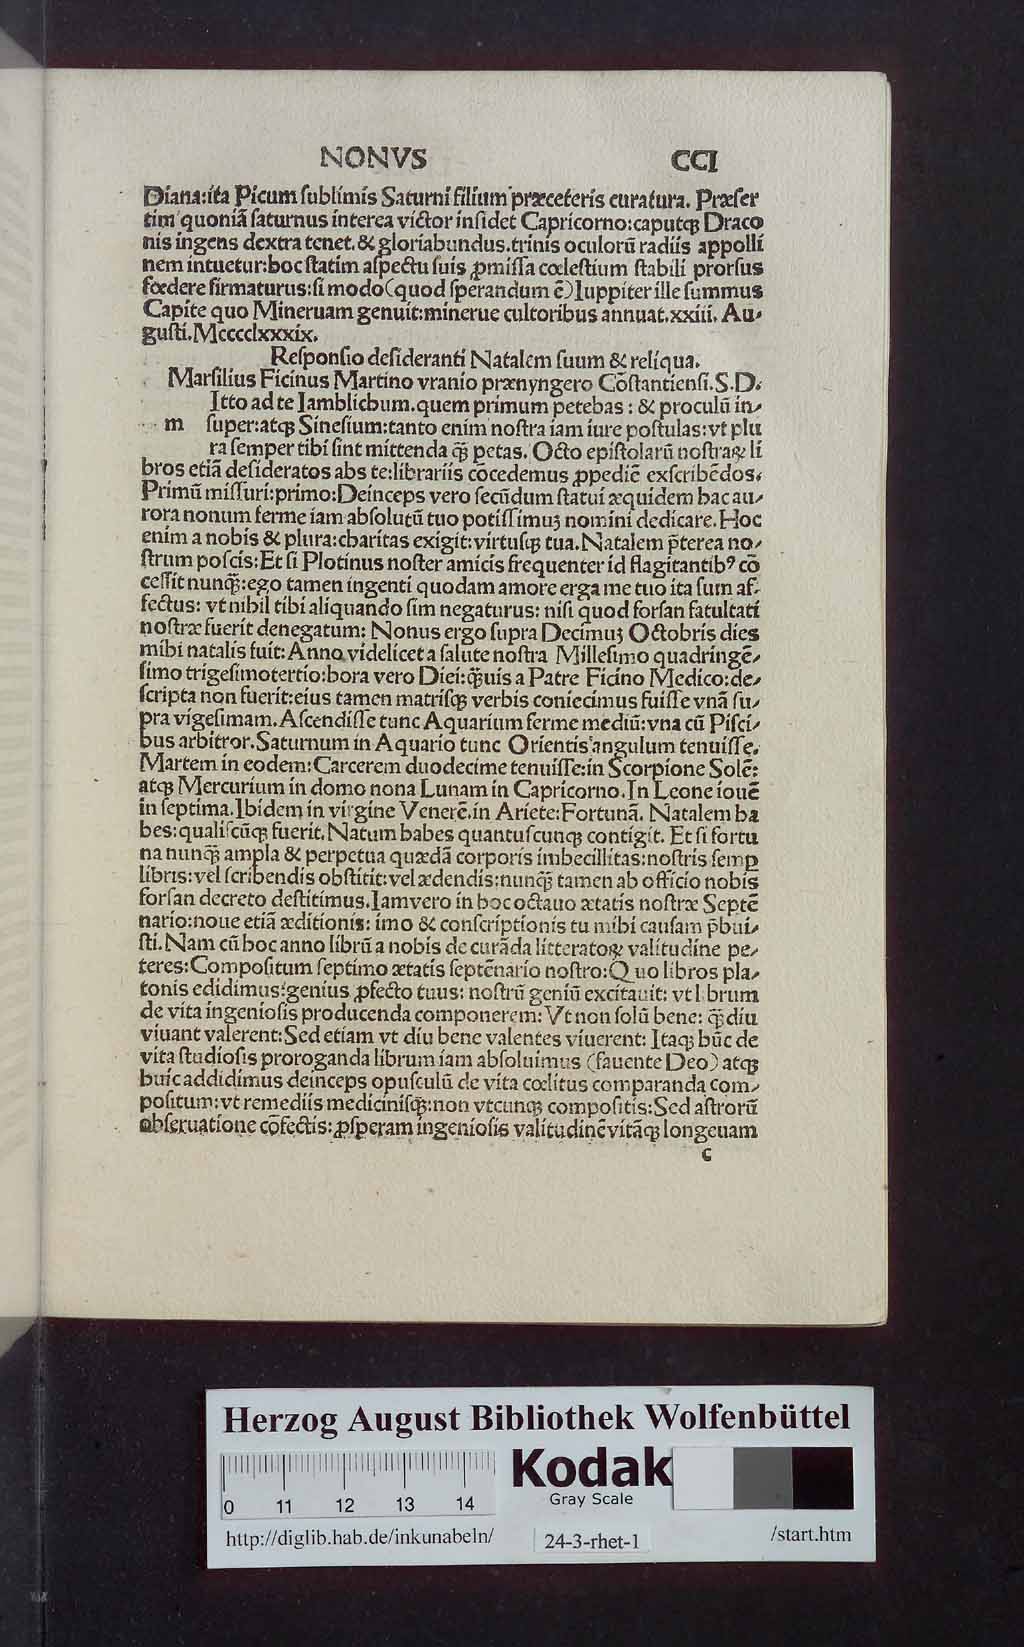 NONVS CCI
Diana:ita Picum ſublimis Saturni filium præceteris curatura. Præſer
tim quoniā ſaturnus interea victor inſidet Capricorno:caputqꝫ Draco
nis ingens dextra tenet.& gloriabundus.trinis oculorū radiis appolli
nem intuetur:hoc ſtatim aſpectu ſuis ꝓmiſſa cœleſtium ſtabili prorſus
fœdere firmaturus:ſi modo(quod ſperandum ē)Iuppiter ille ſummus
Capite quo Mineruam genuit:minerue cultoribus annuat.xxiii. Au⸗
guſti.Mcccclxxxix.
Reſponſio deſideranti Natalem ſuum & reliqua.
Marſilius Ficinus Martino vranio prænyngero Cōſtantienſi.S.D.
Itto ad te Iamblichum.quem primum petebas : & proculū in⸗
m ſuper:atqꝫ Sineſium:tanto enim noſtra iam iure poſtulas:vt plu
ra ſemper tibi ſint mittenda q̄ꝫ petas. Octo epiſtolarū noſtraꝝ li
bros etiā deſideratos abs te:librariis cōcedemus ꝓpediē exſcribēdos.
Primū miſſuri:primo:Deinceps vero ſecūdum ſtatui æquidem hac au⸗
rora nonum ferme iam abſolutū tuo potiſſimuꝫ nomini dedicare. Hoc
enim a nobis & plura:charitas exigit:virtuſqꝫ tua. Natalem p̄terea no⸗
ſtrum poſcis:Et ſi Plotinus noſter amicis frequenter id flagitantibꝰ cō
ceſſit nunq̄ꝫ:ego tamen ingenti quodam amore erga me tuo ita ſum af⸗
fectus: vt nihil tibi aliquando ſim negaturus: niſi quod forſan fatultati
noſtræ fuerit denegatum: Nonus ergo ſupra Decimuꝫ Octobris dies
mihi natalis fuit: Anno videlicet a ſalute noſtra Milleſimo quadringē⸗
ſimo trigeſimotertio:hora vero Diei:q̄ꝫuis a Patre Ficino Medico:de⸗
ſcripta non fuerit:eius tamen matriſqꝫ verbis coniecimus fuiſſe vnā ſu⸗
pra vigeſimam. Aſcendiſſe tunc Aquarium ferme mediū:vna cū Piſci⸗
bus arbitror.Saturnum in Aquario tunc Orientis angulum tenuiſſe.
Martem in eodem:Carcerem duodecime tenuiſſe:in Scorpione Solē:
atqꝫ Mercurium in domo nona Lunam in Capricorno.In Leone iouē
in ſeptima.Ibidem in virgine Venerē.in Ariete:Fortunā. Natalem ha
bes:qualiſcūqꝫ fuerit. Natum habes quantuſcunqꝫ contigit. Et ſi fortu
na nunq̄ꝫ ampla & perpetua quædā corporis imbecillitas:noſtris ſemꝑ
libris:vel ſcribendis obſtitit:vel ædendis:nunq̄ꝫ tamen ab officio nobis
forſan decreto deſtitimus.Iamvero in hoc octauo ætatis noſtræ Septē
nario:noue etiā æditionis: imo & conſcriptionis tu mihi cauſam p̄bui⸗
ſti. Nam cū hoc anno librū a nobis de curāda litteratoꝝ valitudine pe⸗
teres:Compoſitum ſeptimo ætatis ſeptēnario noſtro:Quo libros pla⸗
tonis edidimus:genius ꝓfecto tuus: noſtrū geniū excitauit: vt librum
de vita ingenioſis producenda componerem: Vt non ſolū bene: q̄ꝫ diu
viuant valerent:Sed etiam vt diu bene valentes viuerent: Itaqꝫ hūc de
vita ſtudioſis proroganda librum iam abſoluimus (fauente Deo) atqꝫ
huic addidimus deinceps opuſculū de vita cœlitus comparanda com⸗
poſitum:vt remediis mediciniſqꝫ:non vtcunqꝫ compoſitis:Sed aſtrorū
obſeruatione cōfectis:ꝓſperam ingenioſis valitudinē vitāqꝫ longeuam
c
Herzog August Bibliothek Wolfenbüttel
Kodak
Gray Scale
0 11 12 13 14
http://diglib.hab.de/inkunabeln/ 24-3-rhet-1 /start.htm